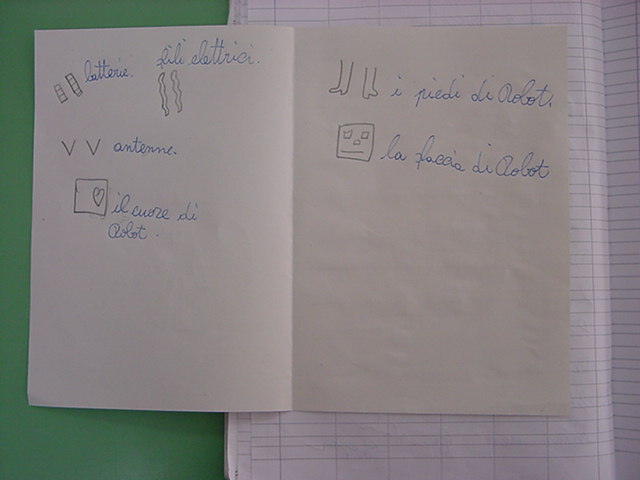 batterie.
fili elettrici.
antenne.
il cuore di
Robot.
i piedi di Robot.
la faccia di Robot